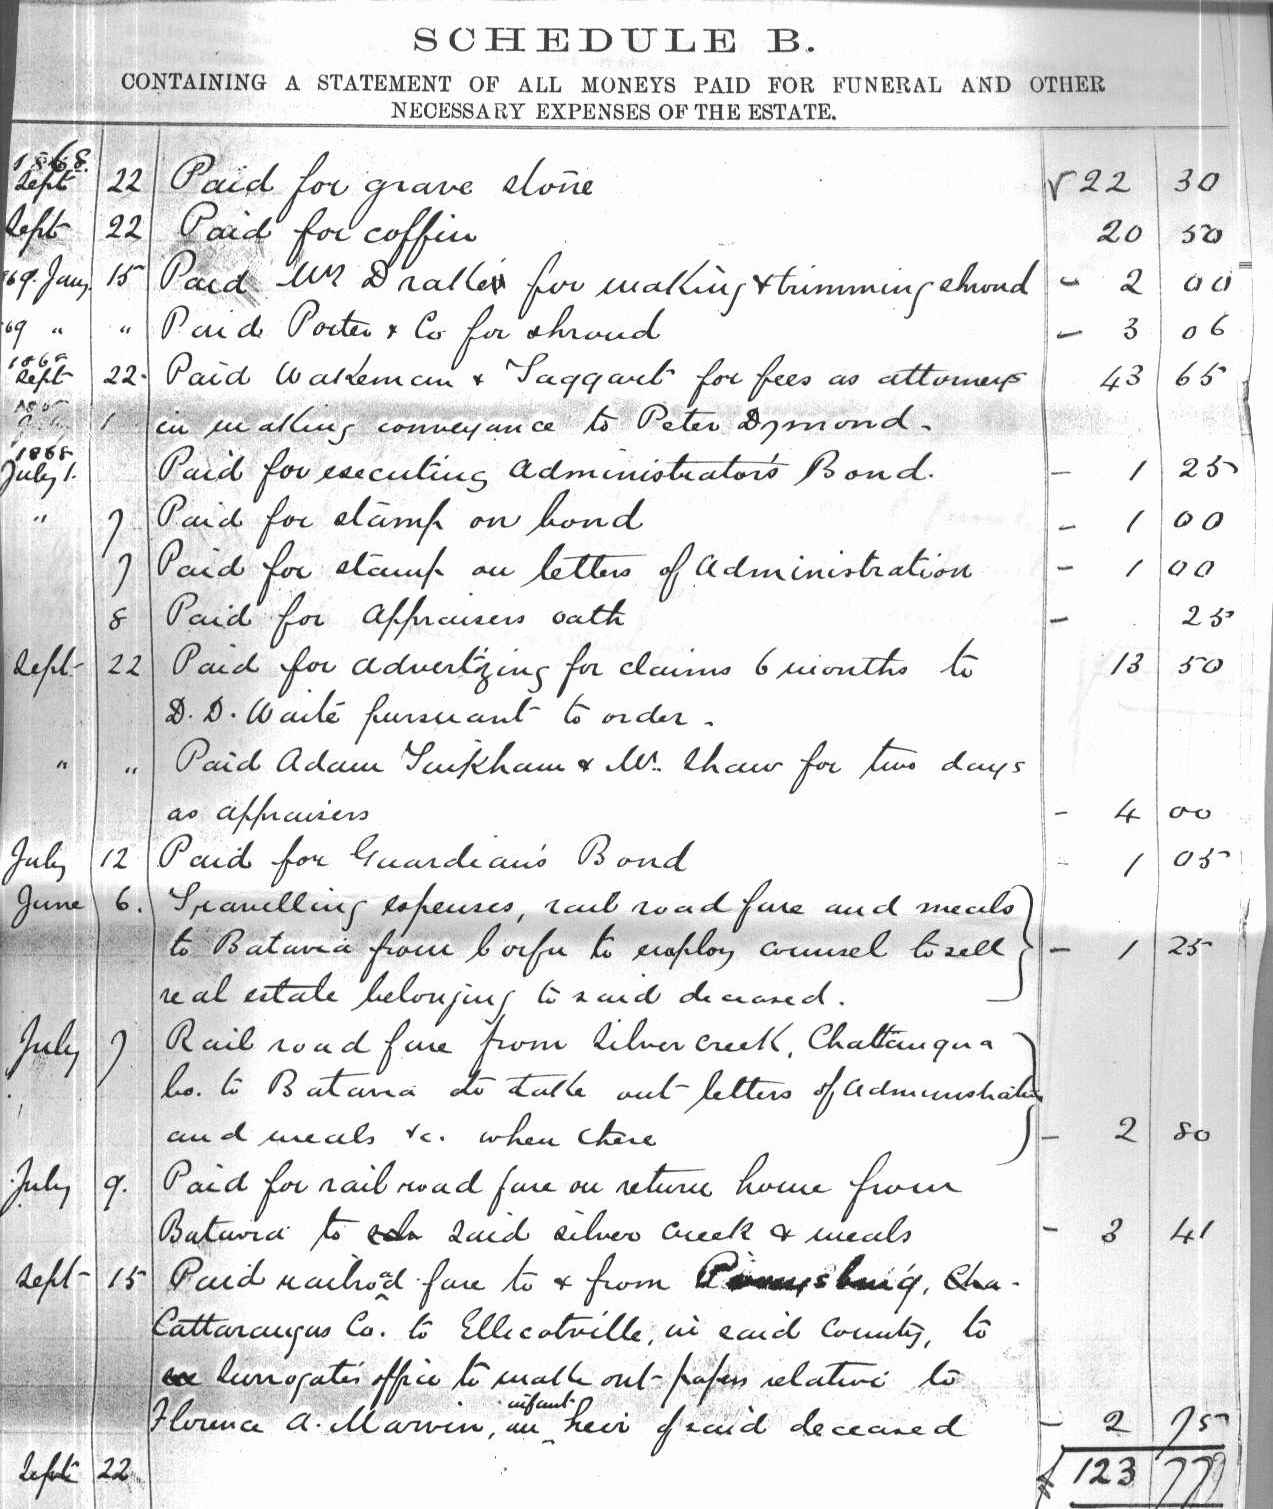 SCHEDULE B.
CONTAINING A STATEMENT OF ALL MONEYS PAID FOR FUNERAL AND OTHER
NECESSARY EXPENSES OF THE ESTATE.
1868.
Sept 22 Paid for grave stone 22 30
Sept 22 Paid for coffin 20 50
69. Jany. 15 Paid Mrs Drake for making & trimming shroud - 2 00
69 " " Paid Porter & Co for shroud - 3 06
1868
Sept 22. Paid Wakeman & Taggart for fees as attorneys 43 65
in making conveyance to Peter Dymond.
1868
July 1. Paid for executing Administrator's Bond. - 1 25
" 7 Paid for stamp on bond - 1 00
7 Paid for stamp on letters of Administration - 1 00
8 Paid for Appraisers oath - 25
Sept 22 Paid for advertizing for claims 6 months to 13 50
D. D. Waite pursuant to order.
" " Paid Adam Tinkham & Mr. Shaw for two days
as appraisers - 4 00
July 12 Paid for Guardian's Bond - 1 05
June 6. Travelling expenses, rail road fare and meals
to Batavia from Corfu to employ counsel to sell - 1 25
real estate belonging to said deceased.
July 7 Rail road fare from Silver Creek, Chattauqua
Co. to Batavia to take out letters of Administration
and meals &c. when there - 2 80
July 9. Paid for rail road fare on return home from
Batavia to said silver creek & meals - 3 41
Sept 15 Paid railroad fare to & from , Cha-
Cattaraugus Co. to Ellicotville, in said County, to
Surrogate's office to make out papers relative to
infant
Florence A. Marvin, an heir of said deceased - 2 75
Sept 22 123 77